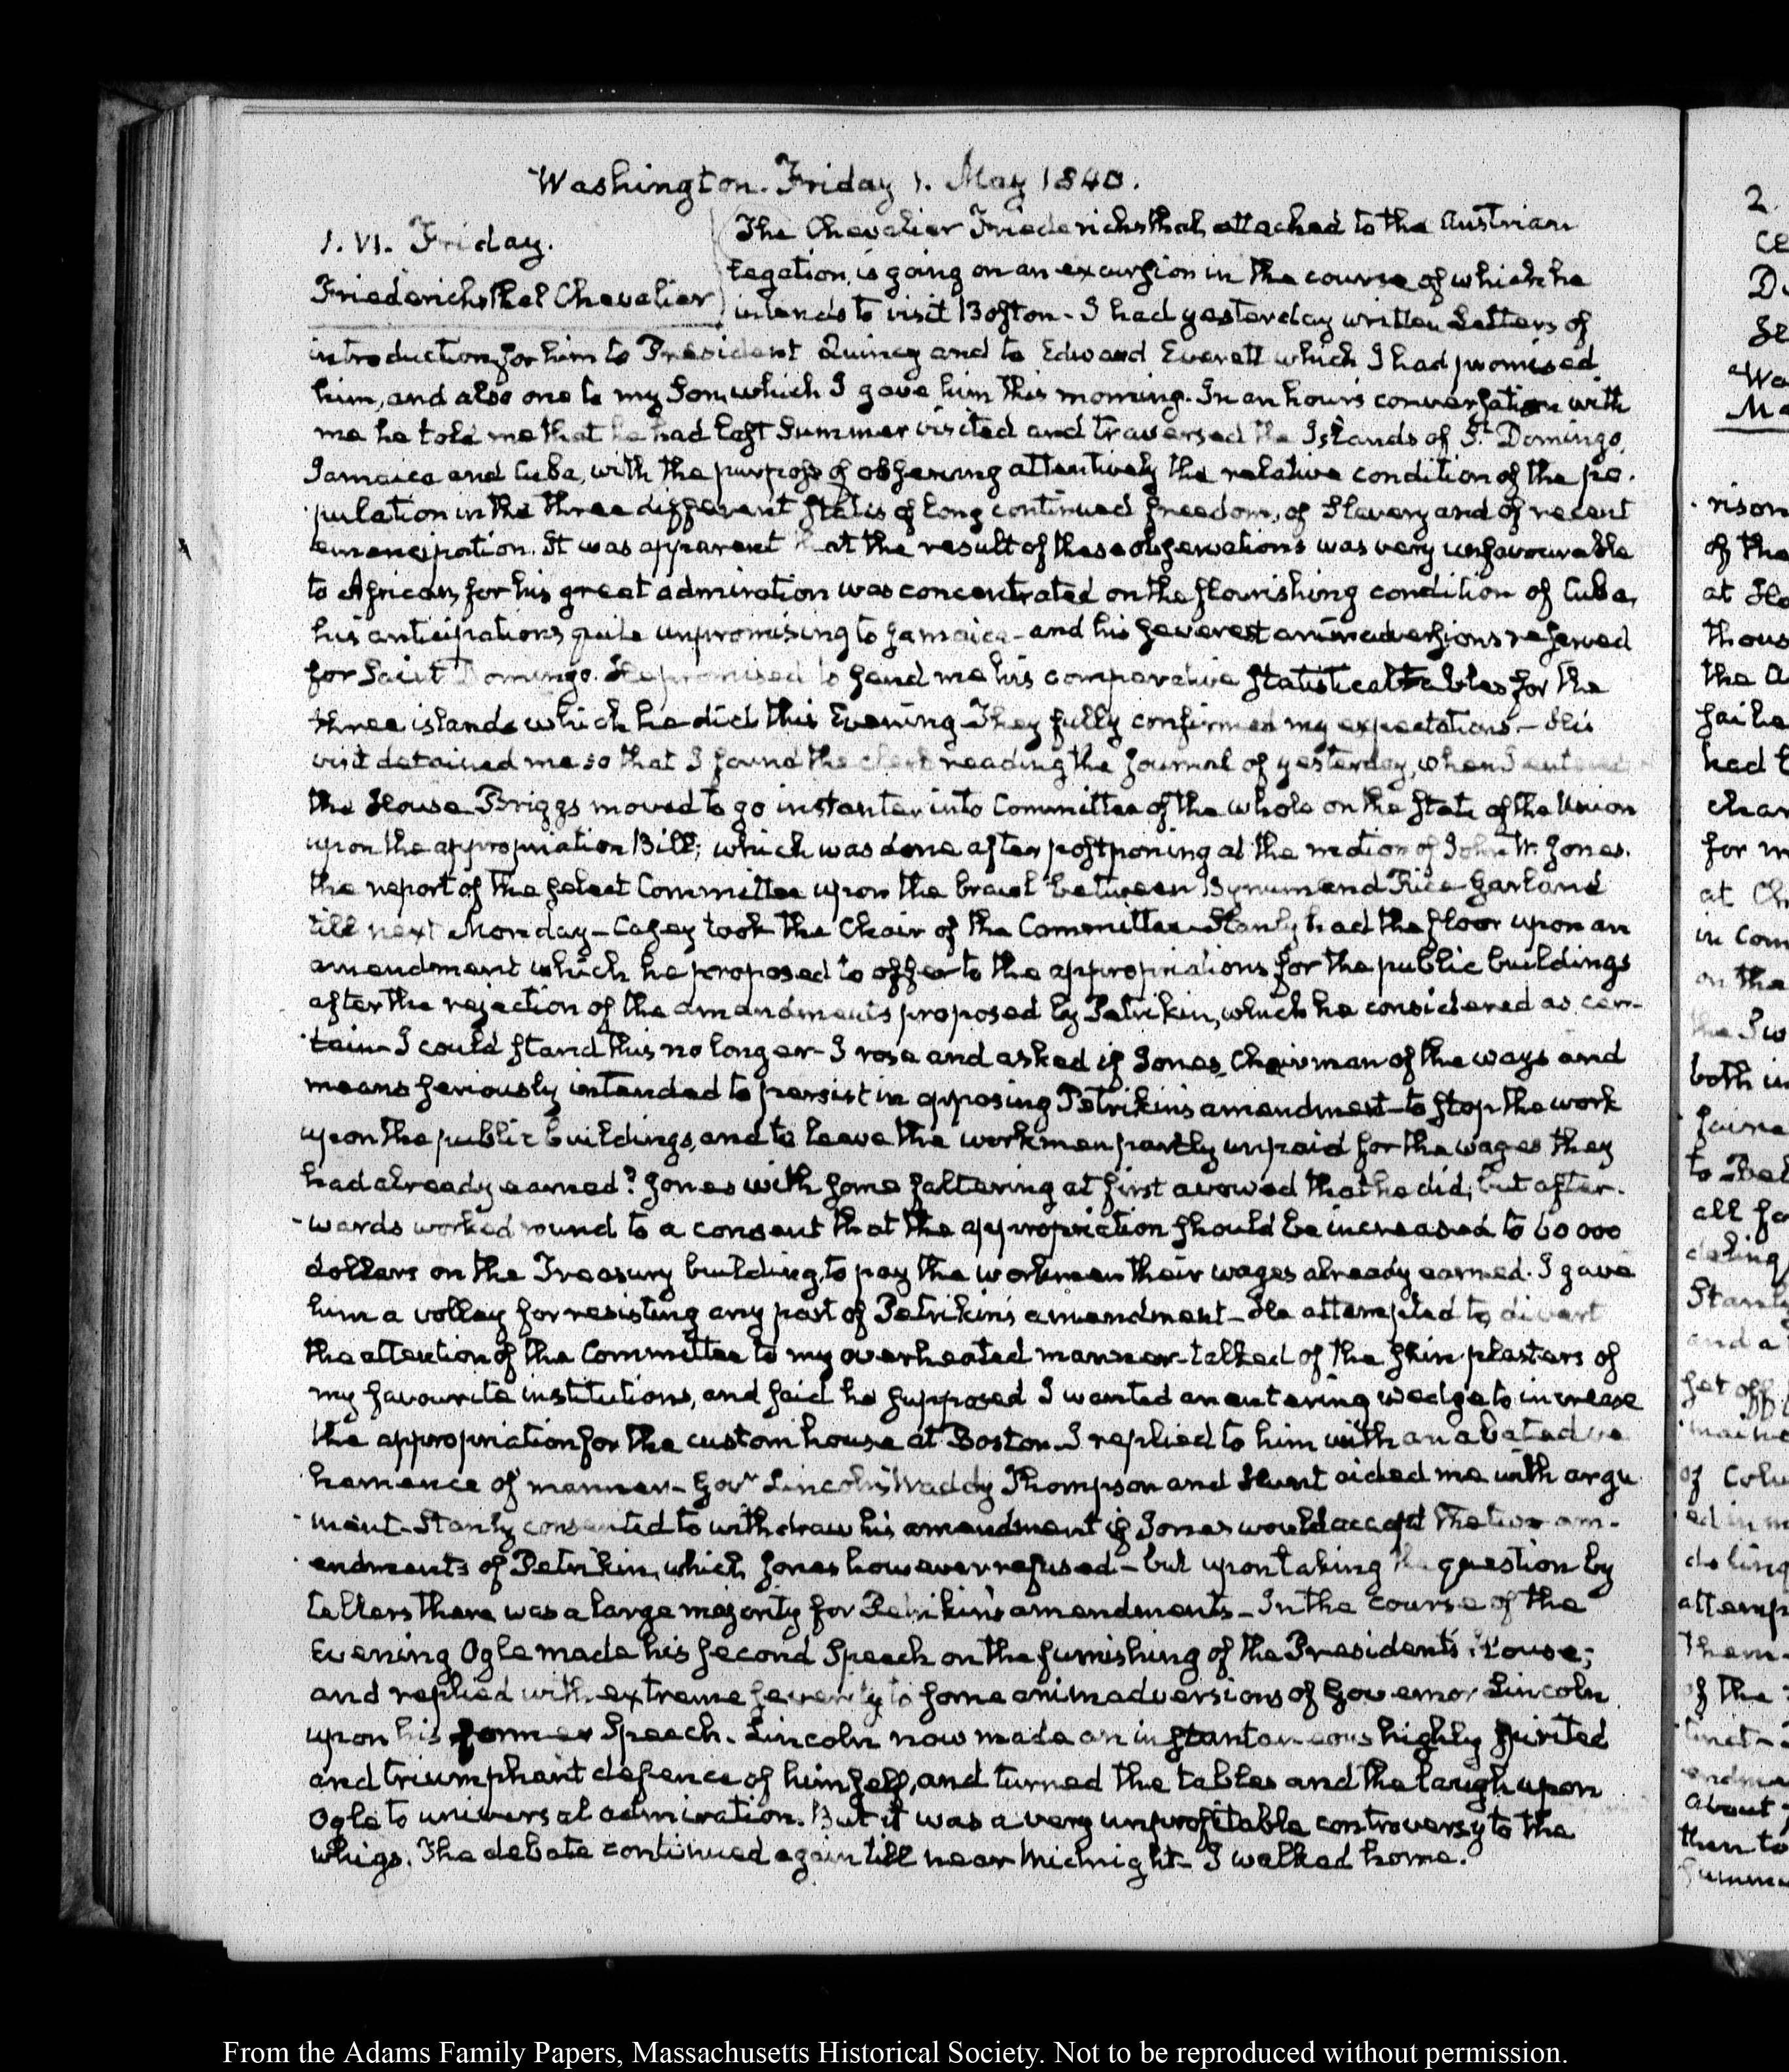 Washington. Friday 1. May 1840.
1. VI. Friday.
Friederichsthal Chevalier
The Chevalier Friederichsthal, attached to the Austrian
Legation, is going on an excursion in the course of which he
intends to visit Boston - I had yesterday written Letters of
introduction for him to President Quincy and to Edward Everett which I had promised
him, and also one to my Son, which I gave him this morning. In an hour's conversation with
me he told me that he had last Summer visited and traversed the Islands of St. Domingo,
Jamaica and Cuba, with the purpose of observing attentively the relative condition of the po-
pulation in the three different states of long continued freedom, of Slavery and of recent
emancipation. It was apparent that the result of these observations was very unfavourable
to African, for his great admiration was concentrated on the flourishing condition of Cuba,
his anticipations quite unpromising to Jamaica - and his severest animadversions reserved
for Saint Domingo. He promised to send me his comparative statistical tables for the
three islands which he did this Evening - They fully confirmed my expectations. - His
visit detained me so that I found the clerk reading the Journal of yesterday, when I entered
the House Briggs moved to go instanter into Committee of the whole on the state of the Union
upon the appropriation Bill; which was done after postponing at the motion of John W. Jones.
the report of the select Committee upon the brawl between Bynum and Rice Garland
till next Monday - Casey took the Chair of the Committee - Stanly had the floor upon an
amendment which he proposed to offer to the appropriations for the public buildings
after the rejection of the amendments proposed by Petrikin, which he considered as cer-
-tain - I could stand this no longer - I rose and asked if Jones, Chairman of the ways and
means seriously intended to persist in opposing Petrikin's amendment - to stop the work
upon the public buildings, and to leave the workmen partly unpaid for the wages they
had already earned? Jones with some faltering at first avowed that he did; but after-
-wards worked round to a consent that the appropriation should be increased to 60 000
dollars on the Treasury building, to pay the workmen their wages already earned. I gave
him a volley for resisting any part of Petrikin's amendment - He attempted to divert
the attention of the Committee to my overheated manner - talked of the shin plasters of
my favourite institutions, and said he supposed I wanted an entering wedge to increase
the appropriation for the custom house at Boston - I replied to him with an abated ve
hemence of manner - Govr Lincoln, Waddy Thompson and Hunt aided me with argu
-ment - Stanly consented to withdraw his amendment if Jones would accept the two am-
-endments of Petrikin, which Jones however refused - but upon taking the question by
tellers there was a large majority for Petrikin's amendments - In the course of the
Evening Ogle made his second Speech on the furnishing of the President's House;
and replied with extreme severity to some animadversions of Governor Lincoln
upon his former Speech. Lincoln now made an instantaneous highly spirited
and triumphant defence of himself, and turned the tables and the laugh upon
Ogle to universal admiration. But it was a very unprofitable controversy to the
whigs. The debate continued again till near Midnight - I walked home.
From the Adams Family Papers, Massachusetts Historical Society. Not to be reproduced without permission.